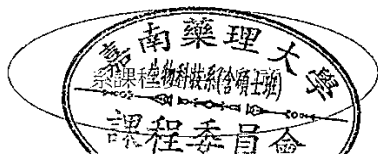 嘉南藥理大學
系課程生物科技系(含碩士班)
課程委員會